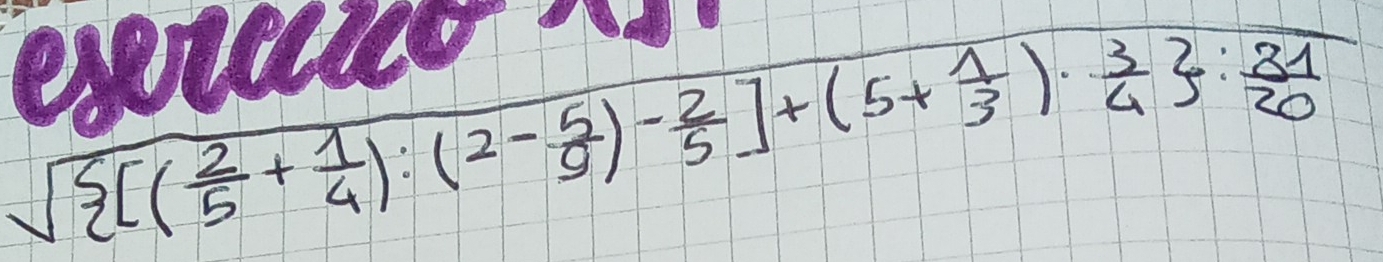 esercizio
√{[(2/5 + 1/4) : (2 - 5/9) - 2/5] + (5 + 1/3) · 3/4} : 81/20